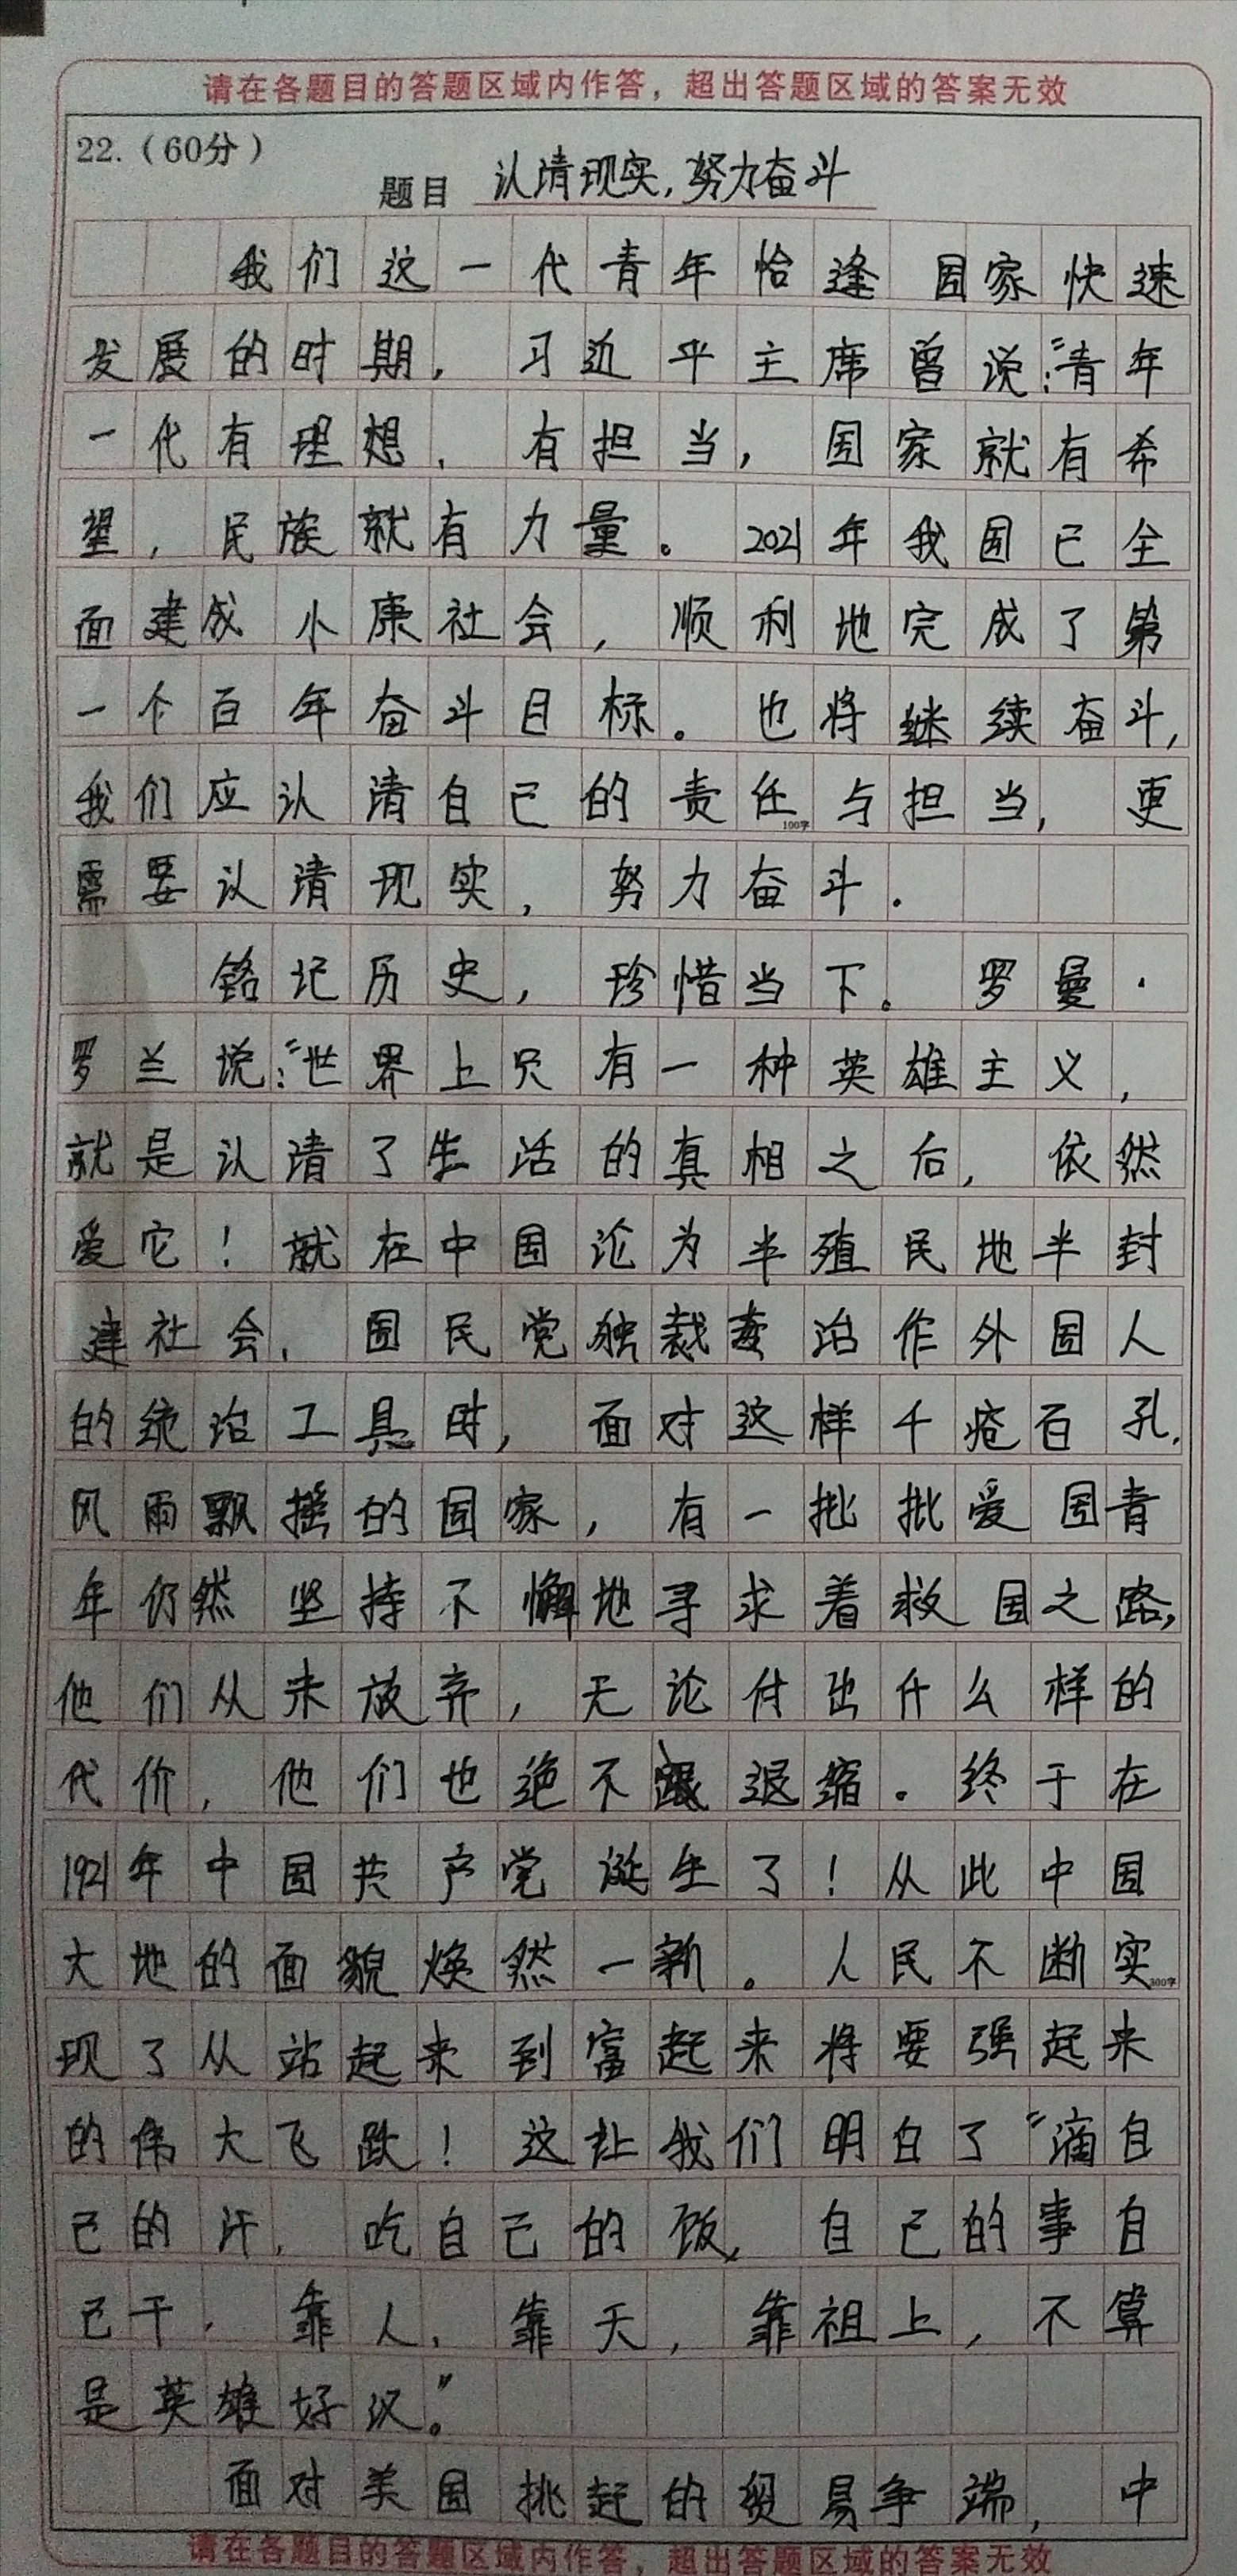 请在各题目的答题区域内作答，超出答题区域的答案无效
22.（60分）
题目 认清现实，努力奋斗
我们这一代青年恰逢国家快速
发展的时期，习近平主席曾说：“青年
一代有理想、有担当，国家就有希
望，民族就有力量。2021年我国已全
面建成小康社会，顺利地完成了第
一个百年奋斗目标。也将继续奋斗，
我们应认清自己的责任与担当，更
100字
需要认清现实，努力奋斗.
铭记历史，珍惜当下。罗曼·
罗兰说：“世界上只有一种英雄主义，
就是认清了生活的真相之后，依然
爱它！就在中国论为半殖民地半封
建社会、国民党独裁 治作外国人
的统治工具时，面对这样千疮百孔、
风雨飘摇的国家，有一批批爱国青
年仍然坚持不懈地寻求着救国之路，
他们从未放弃，无论付出什么样的
代价，他们也绝不退缩。终于在
1921年中国共产党诞生了！从此中国
大地的面貌焕然一新。人民不断实
300字
现了从站起来到富起来将要强起来
的伟大飞跃！这让我们明白了“滴自
己的汗，吃自己的饭，自己的事自
己干，靠人、靠天，靠祖上，不算
是英雄好汉。”
面对美国挑起的贸易争端，中
请在各题目的答题区域内作答，超出答题区域的答案无效